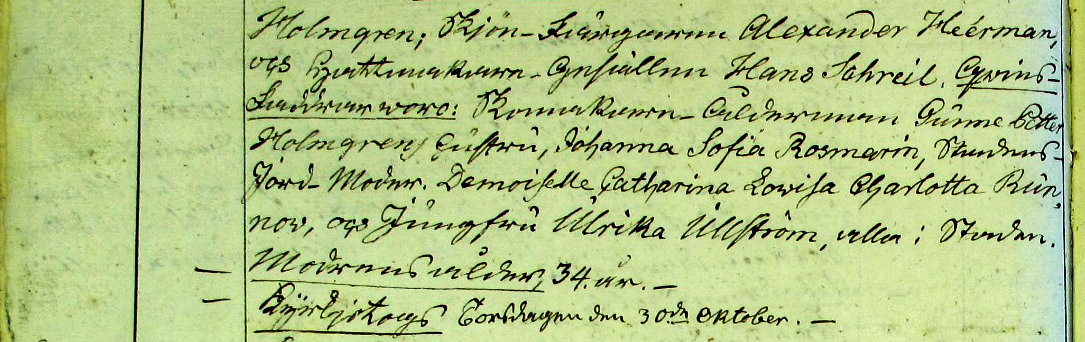 Holmgren; Skjön-Färgaren Alexander Heérman,
och Hattmakare-Gesällen Hans Schreil. Qvins-
Faddrar woro: Skomakare-Ålderman Gunne Petter
Holmgrens hustru, Johanna Sofia Rosmarin, Stadens-
Jord-Moder. Demoiselle Catharina Lowisa Charlotta Run-
nov, och Jungfru Ulrika Ullström, alla i Staden.
— Modrens ålder, 34. år. —
— Kyrkjotogs Torsdagen den 30de Oktober. —